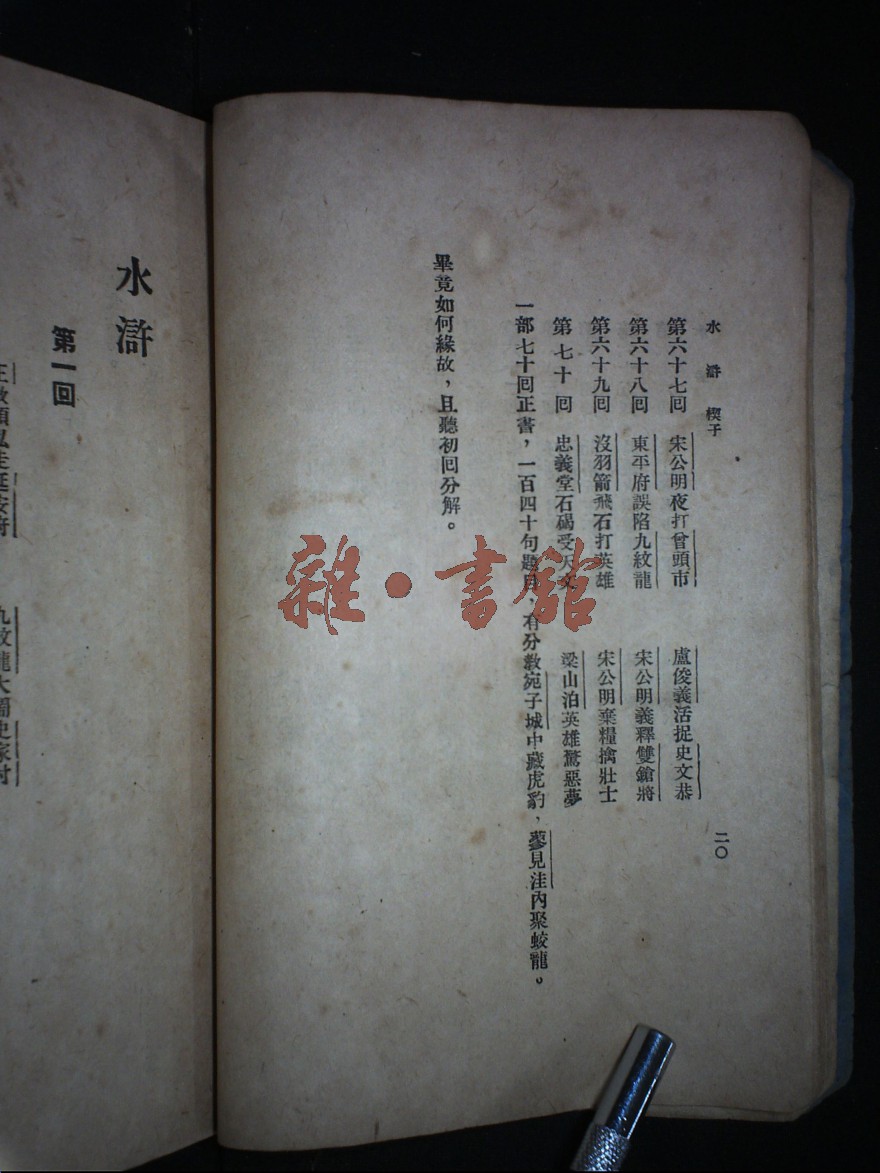 水滸 楔子
二〇
第六十七回 宋公明夜打曾頭市 盧俊義活捉史文恭
第六十八回 東平府誤陷九紋龍 宋公明義釋雙鎗將
第六十九回 沒羽箭飛石打英雄 宋公明棄糧擒壯士
第七十回 忠義堂石碣受天文 梁山泊英雄驚惡夢
一部七十回正書，一百四十句題目，有分教宛子城中藏虎豹，蓼見洼內聚蛟龍。
畢竟如何緣故，且聽初回分解。
水滸
第一回
王教頭私走延安府 九紋龍大鬧史家村
雜·書館